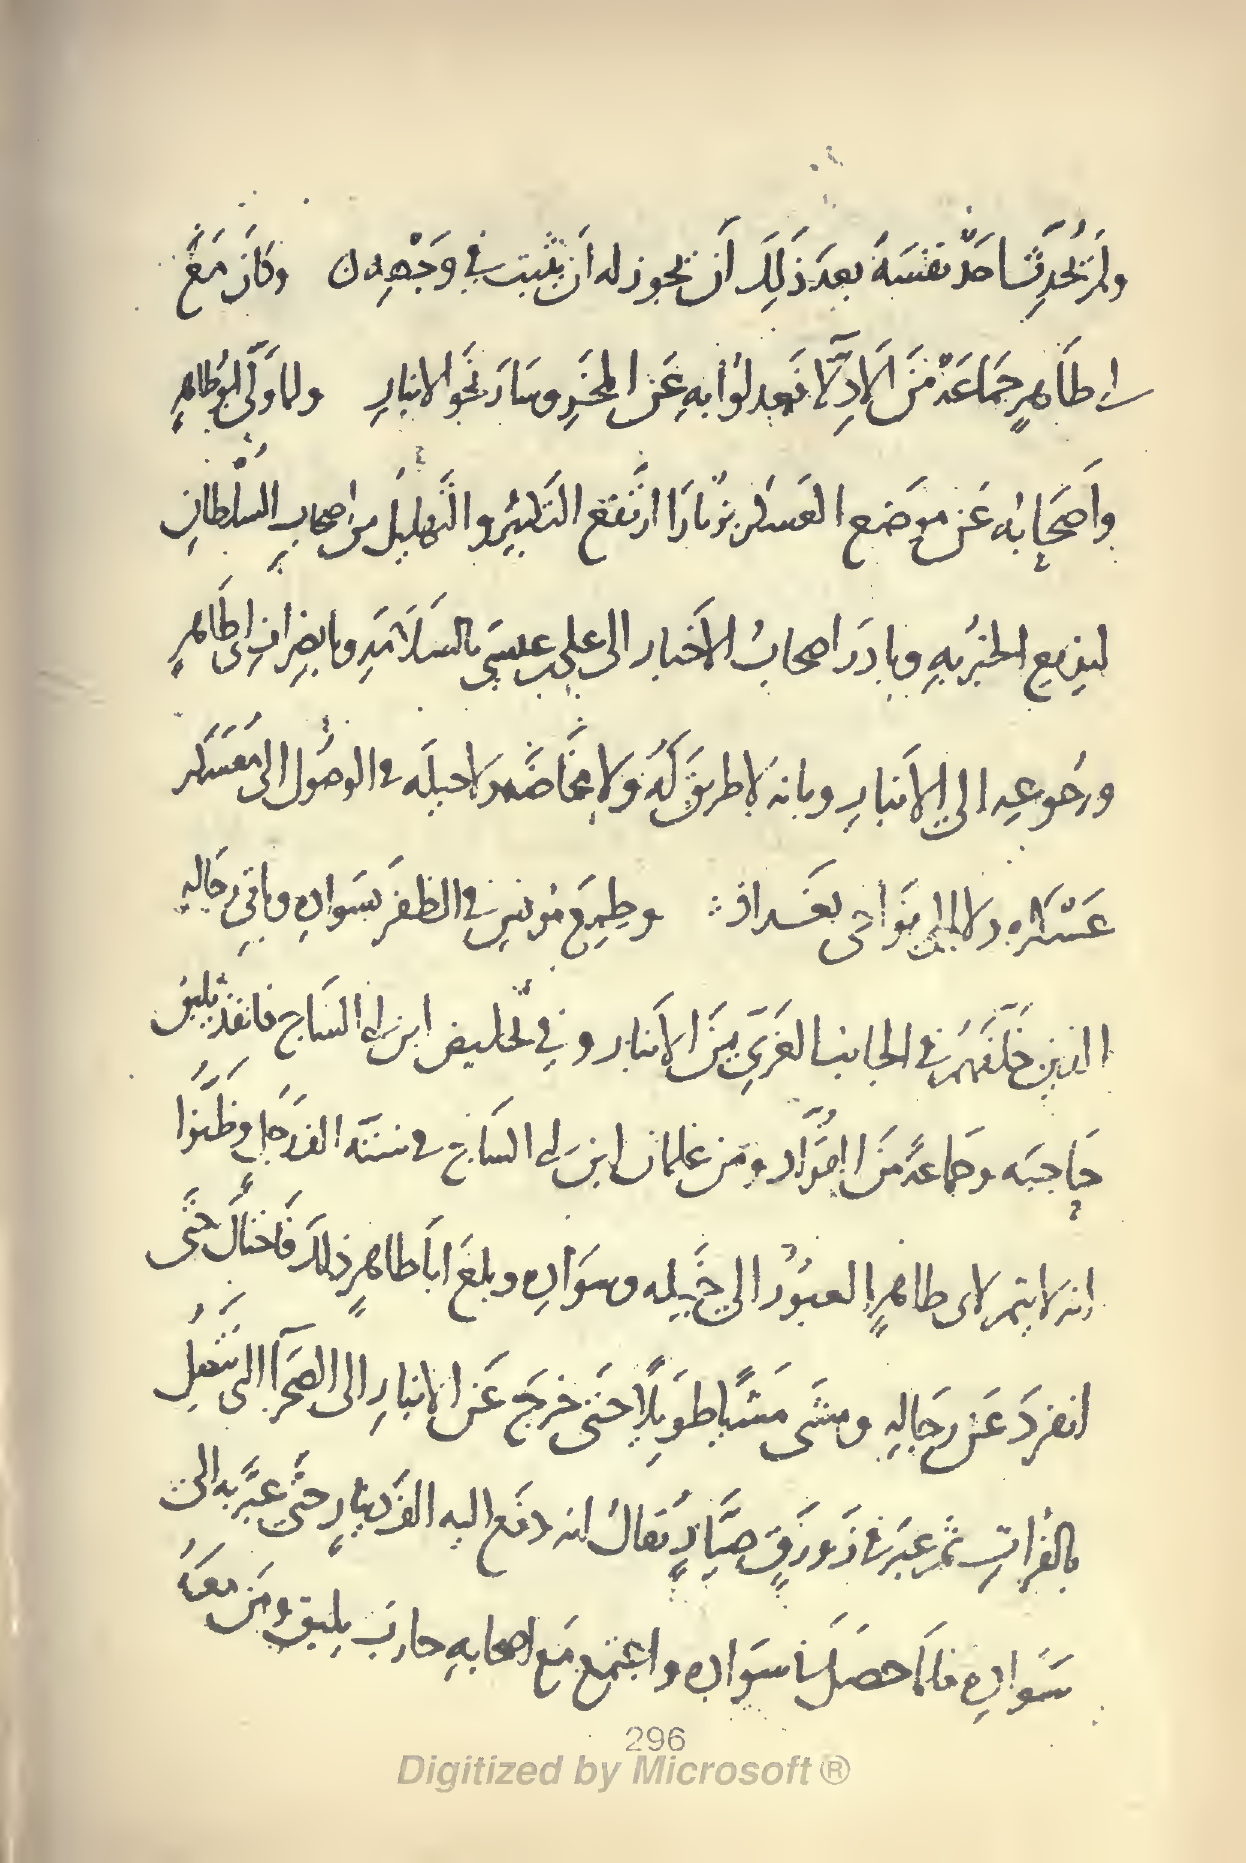 ولم يُحدِّث احدٌ نفسَهُ بعدَ ذلِكَ ان يجوز له ان يثبت في وجههِ ن وكانَ مَعَ
ابى طاهرٍ جماعَةٌ منَ الادِلَّا فعدلوا بهِ عَن المخترٍ وسارَ نحوَ الانبارِ ولما وَلَّى ابوُ طاهرٍ
واصحَابُه عَن موضع العسكر بزُبارا ارتفع التكبيرُ والتهليل من اصحابِ السُلْطانِ
ليذيع الخبرُ بهِ وبادرَ اصحابُ الاخبار الى على بن عيسَى بالسَلامَةِ وبانصِرافِ ابى طاهرٍ
ورجُوعِه الى الانبارِ وبانه لا طريقَ لَهُ ولا مخاضَه ولا حيلَه فى الوصُول الى مُعَسكر
عَسْكره ولا الى نوَاحى بغداذ ∴ وطِمعَ مُونس في الظفر بسَوادِه وباقى رجَالهِ
الذين خَلَّفهُم في الجانب الغربىِ بينَ الانبار و في تخليص ابن ابى السَاج فانفذ بُليقُ
حَاجبَه وجماعةً منَ القوَّاد ومن غلمان ابن ابى السَاج فى ستَّه الف رَجُلٍ وظَنُوا
انه لا يتم لابى طاهرٍ العبوُر الى خيلِه وسوَادِه وبلغَ ابا طاهرٍ ذلك فاحتالَ حتَّى
انفردَ عَن رجَالِهِ ومشَى مَشْياً طويلًا حتى خرجَ عَن الانبارِ الى الصَحرآ التى تتصِلُ
بالفُراتِ ثم عبَر في زَورَقِ صيَّادٍ يُقالُ انه دفعَ اليه الفَ دينارٍ حتَّى عبَّر به الى
سَوادِه فلما حصَل في سوَادِه واجتمع مَع اصحابهِ حاربَ بليق ومَن معَهُ
296
Digitized by Microsoft ®